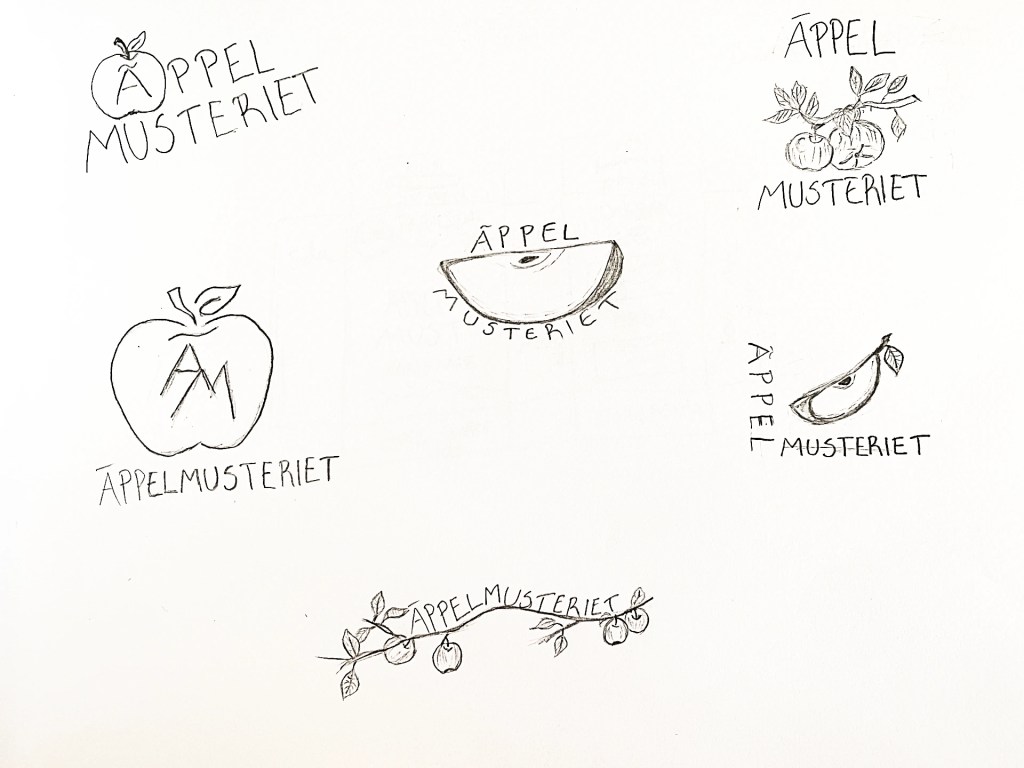 ÄPPEL
MUSTERIET
ÄPPEL
MUSTERIET
ÄPPEL
MUSTERIET
AM
ÄPPELMUSTERIET
ÄPPEL
MUSTERIET
ÄPPELMUSTERIET